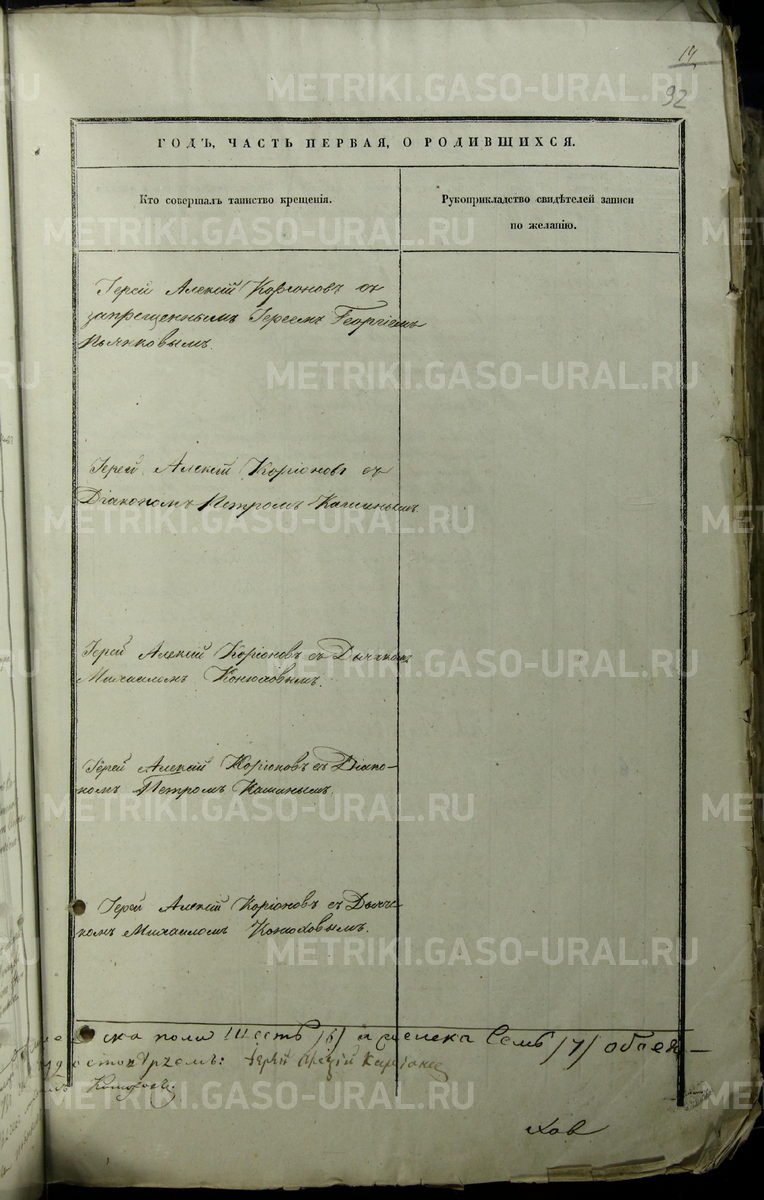 14
92
ГОДЪ, ЧАСТЬ ПЕРВАЯ, О РОДИВШИХСЯ.
Кто совершалъ таинство крещенія.
Рукоприкладство свидѣтелей записи
по желанію.
Іерей Алексій Коріоновъ съ
запрещеннымъ Іереемъ Георгіемъ
Пьянковымъ.
Іерей Алексій Коріоновъ съ
Діакономъ Петромъ Кашинымъ.
Іерей Алексій Коріоновъ съ Дьячкомъ
Михаиломъ Конюховымъ.
Іерей Алексій Коріоновъ съ Діако-
номъ Петромъ Кашинымъ.
Іерей Алексій Коріоновъ съ Дьяч-
комъ Михаиломъ Конюховымъ.
ска пола Шесть /6/ а женска Семь /7/ обоего
Іерей Алексій Коріонов
METRIKI.GASO-URAL.RU